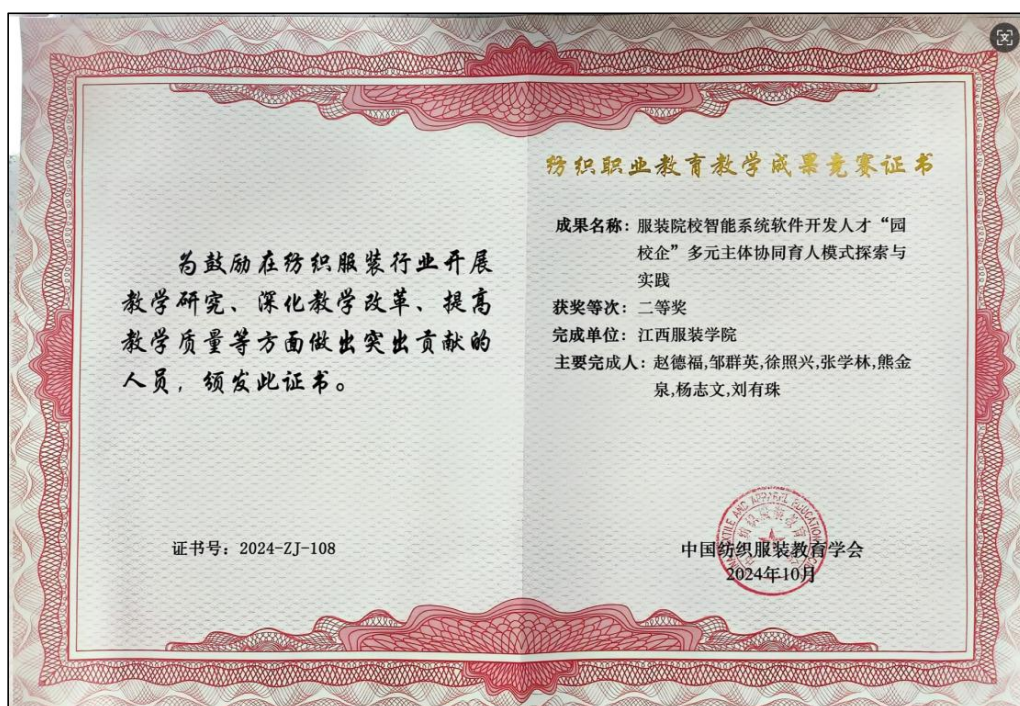 为鼓励在纺织服装行业开展
教学研究、深化教学改革、提高
教学质量等方面做出突出贡献的
人员，颁发此证书。
证书号：2024-ZJ-108
纺织职业教育教学成果竞赛证书
成果名称：服装院校智能系统软件开发人才“园
校企”多元主体协同育人模式探索与
实践
获奖等次：二等奖
完成单位：江西服装学院
主要完成人：赵德福,邹群英,徐照兴,张学林,熊金
泉,杨志文,刘有珠
中国纺织服装教育学会
2024年10月